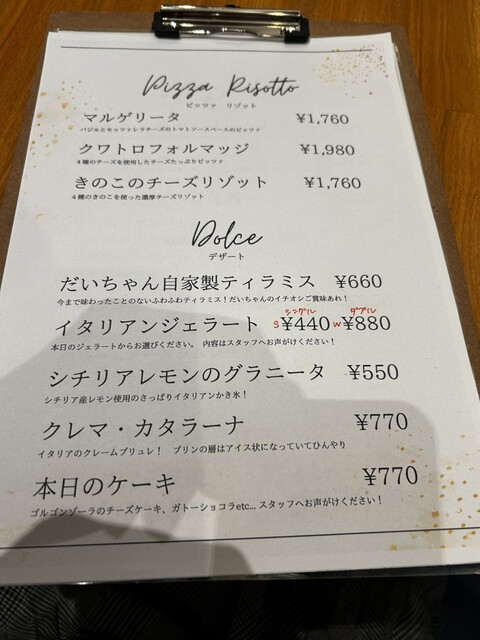 Pizza Risotto
ピッツァ リゾット
マルゲリータ ¥1,760
バジルとモッツァレラチーズのトマトソースベースのピッツァ
クワトロフォルマッジ ¥1,980
4種のチーズを使用したチーズたっぷりピッツァ
きのこのチーズリゾット ¥1,760
4種のきのこを使った濃厚チーズリゾット
Dolce
デザート
だいちゃん自家製ティラミス ¥660
今まで味わったことのないふわふわティラミス！だいちゃんのイチオシご賞味あれ！
シングル ダブル
イタリアンジェラート S¥440 W¥880
本日のジェラートからお選びください。 内容はスタッフへお声がけください！
シチリアレモンのグラニータ ¥550
シチリア産レモン使用のさっぱりイタリアンかき氷！
クレマ・カタラーナ ¥770
イタリアのクレームブリュレ！ プリンの層はアイス状になっていてひんやり
本日のケーキ ¥770
ゴルゴンゾーラのチーズケーキ、ガトーショコラetc... スタッフへお声がけください！